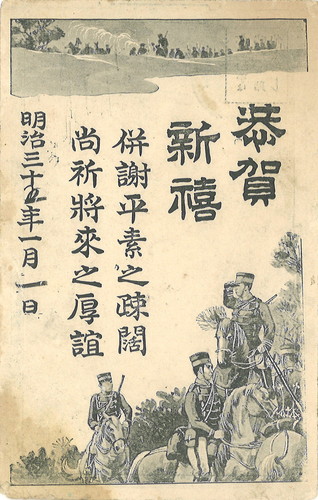 恭賀
新禧
併謝平素之疎闊
尚祈將來之厚誼
明治三十五年一月一日